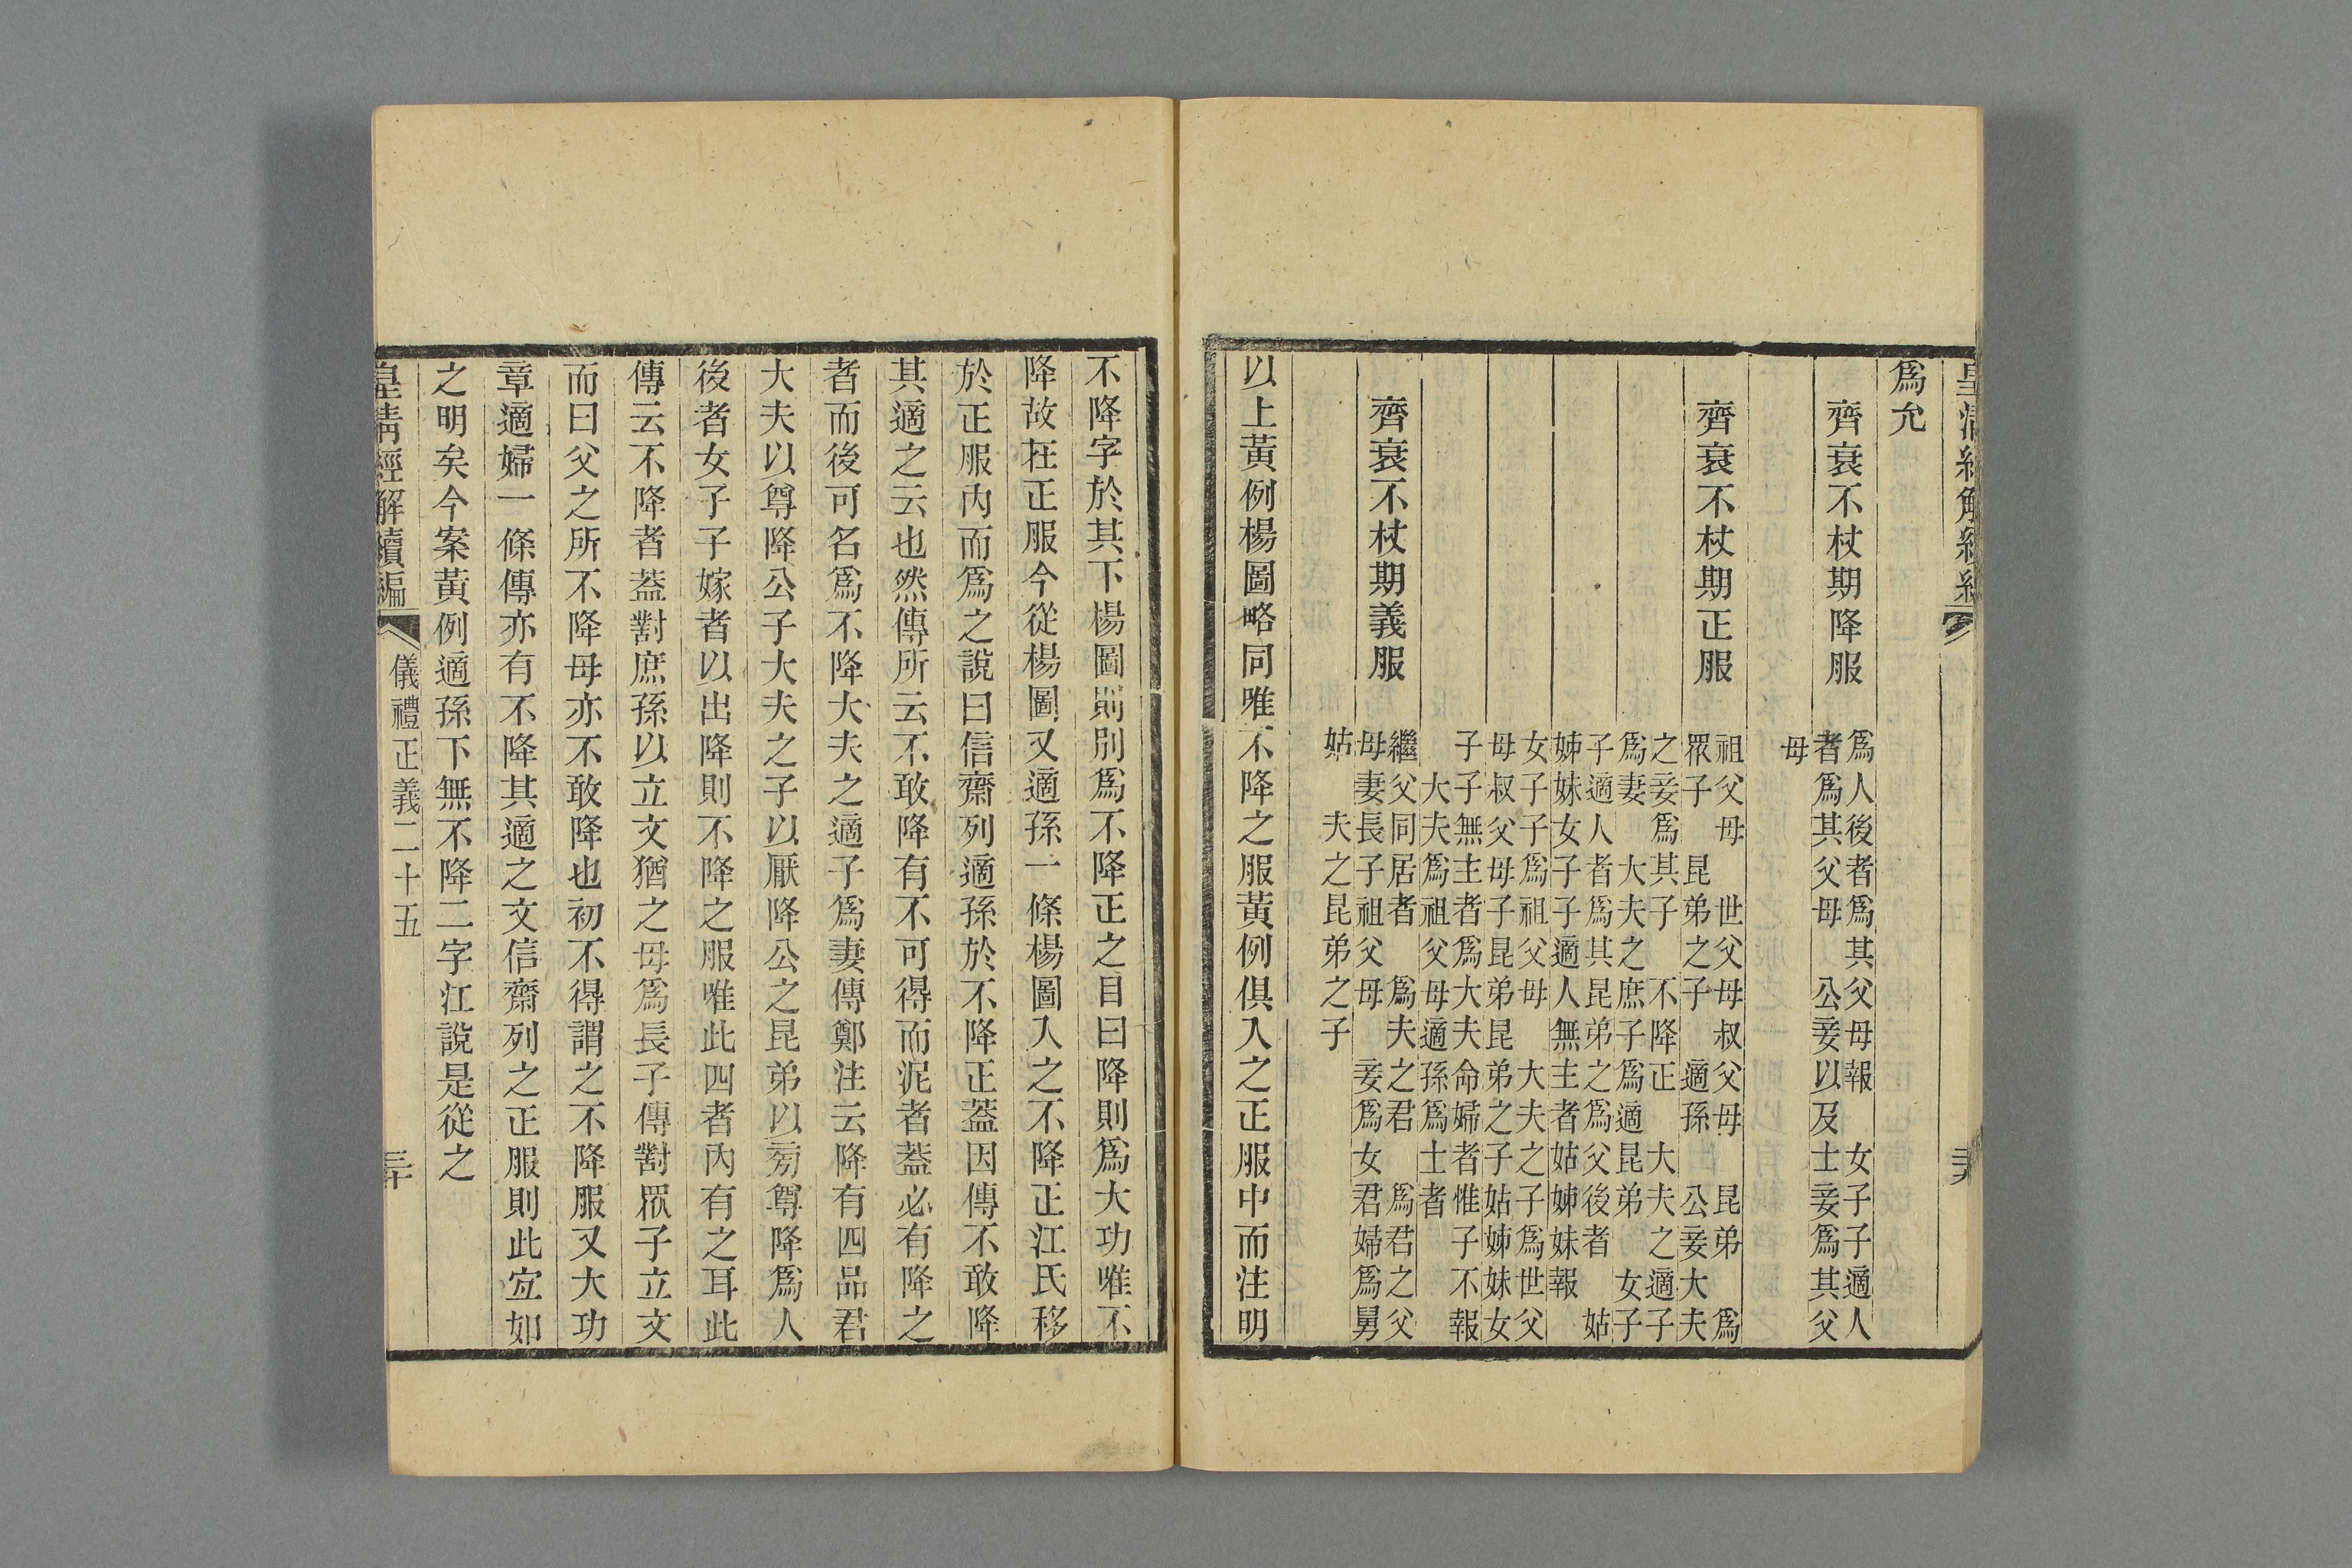 爲允
齊衰不杖期降服
爲人後者爲其父母報　女子子適人
者爲其父母　公妾以及士妾爲其父
母
齊衰不杖期正服
祖父母　世父母叔父母　昆弟　爲
眾子　昆弟之子　適孫　公妾大夫
之妾爲其子　不降正　大夫之適子
爲妻　大夫之庶子爲適昆弟　女子
子適人者爲其昆弟之爲父後者　姑
姊妹女子子適人無主者姑姊妹報
女子子爲祖父母　大夫之子爲世父
母叔父母子昆弟昆弟之子姑姊妹女
子子無主者爲大夫命婦者惟子不報
大夫爲祖父母適孫爲士者
齊衰不杖期義服
繼父同居者　爲夫之君　爲君之父
母妻長子祖父母　妾爲女君婦爲舅
姑　夫之昆弟之子
以上黃例楊圖略同唯不降之服黃例俱入之正服中而注明
不降字於其下楊圖則別爲不降正之目曰降則爲大功唯不
降故在正服今從楊圖又適孫一條楊圖入之不降正江氏移
於正服內而爲之說曰信齋列適孫於不降正蓋因傳不敢降
其適之云也然傳所云不敢降有不可得而泥者蓋必有降之
者而後可名爲不降大夫之適子爲妻傳鄭注云降有四品君
大夫以尊降公子大夫之子以厭降公之昆弟以旁尊降爲人
後者女子子嫁者以出降則不降之服唯此四者內有之耳此
傳云不降者蓋對庶孫以立文猶之母爲長子傳對眾子立文
而曰父之所不降母亦不敢降也初不得謂之不降服又大功
章適婦一條傳亦有不降其適之文信齋列之正服則此宜如
之明矣今案黃例適孫下無不降二字江說是從之
皇清經解續編　儀禮正義二十五　三十